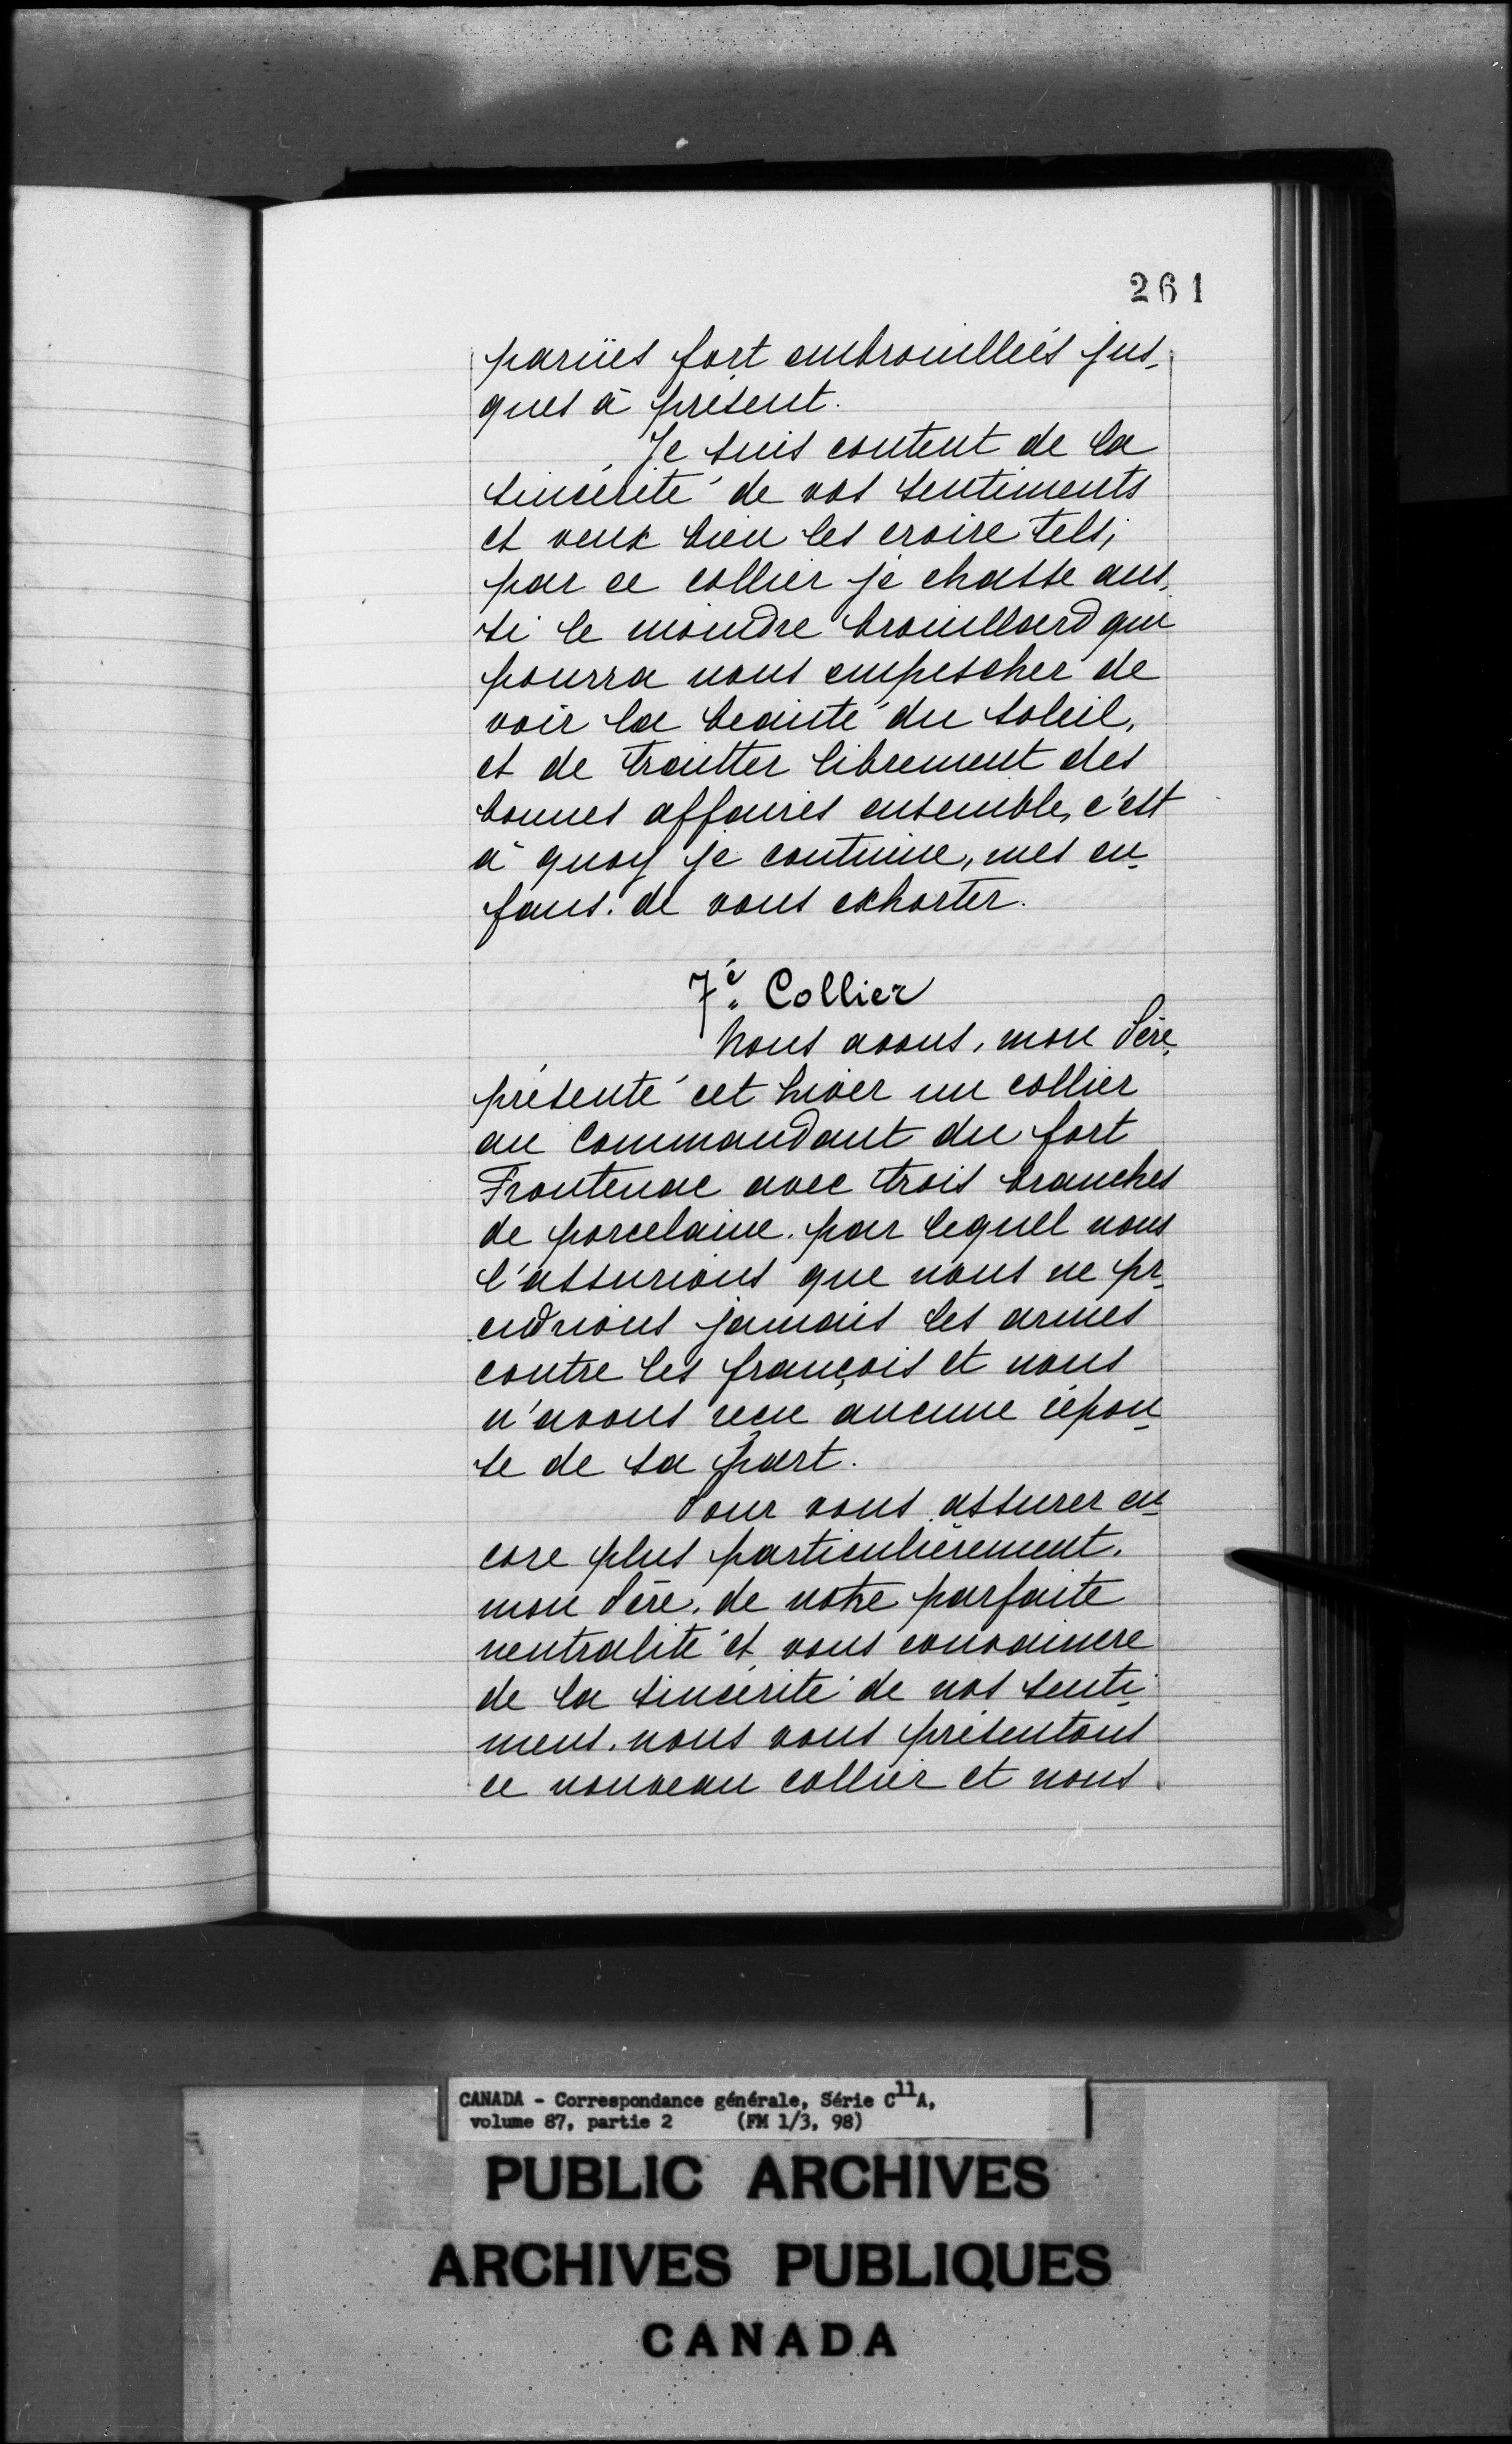 261
parües fort embrouilleés jus-
ques à présent.
Je suis content de la
sincérité de vos sentiments
et veux bien les croire tels;
par ce collier je chasse aus-
si le moindre brouillard qui
pourra nous empescher de
voir la beauté du soleil,
et de traitter librement des
bonnes affaires ensemble, c'est
à quoy je continue, mes en-
fans. de vous exhorter.
7e. Collier
Nous avons, mon Père,
présenté cet hiver un collier
au Commandant du fort
Frontenac avec trois branches
de porcelaine. par lequel nous
l'assurions que nous ne pr-
endrions jamais les armes
contre les françois et nous
n'avons reçu aucune répon-
se de sa part.
Pour vous assurer en-
core plus particulièrement.
mon Père. de notre parfaite
neutralité et vous convaincre
de la sincérité de nos senti-
mens. nous vous présentons
ce nouveau collier et nous
CANADA - Correspondance générale, Série C11A,
volume 87, partie 2 (FM 1/3, 98)
PUBLIC ARCHIVES
ARCHIVES PUBLIQUES
CANADA